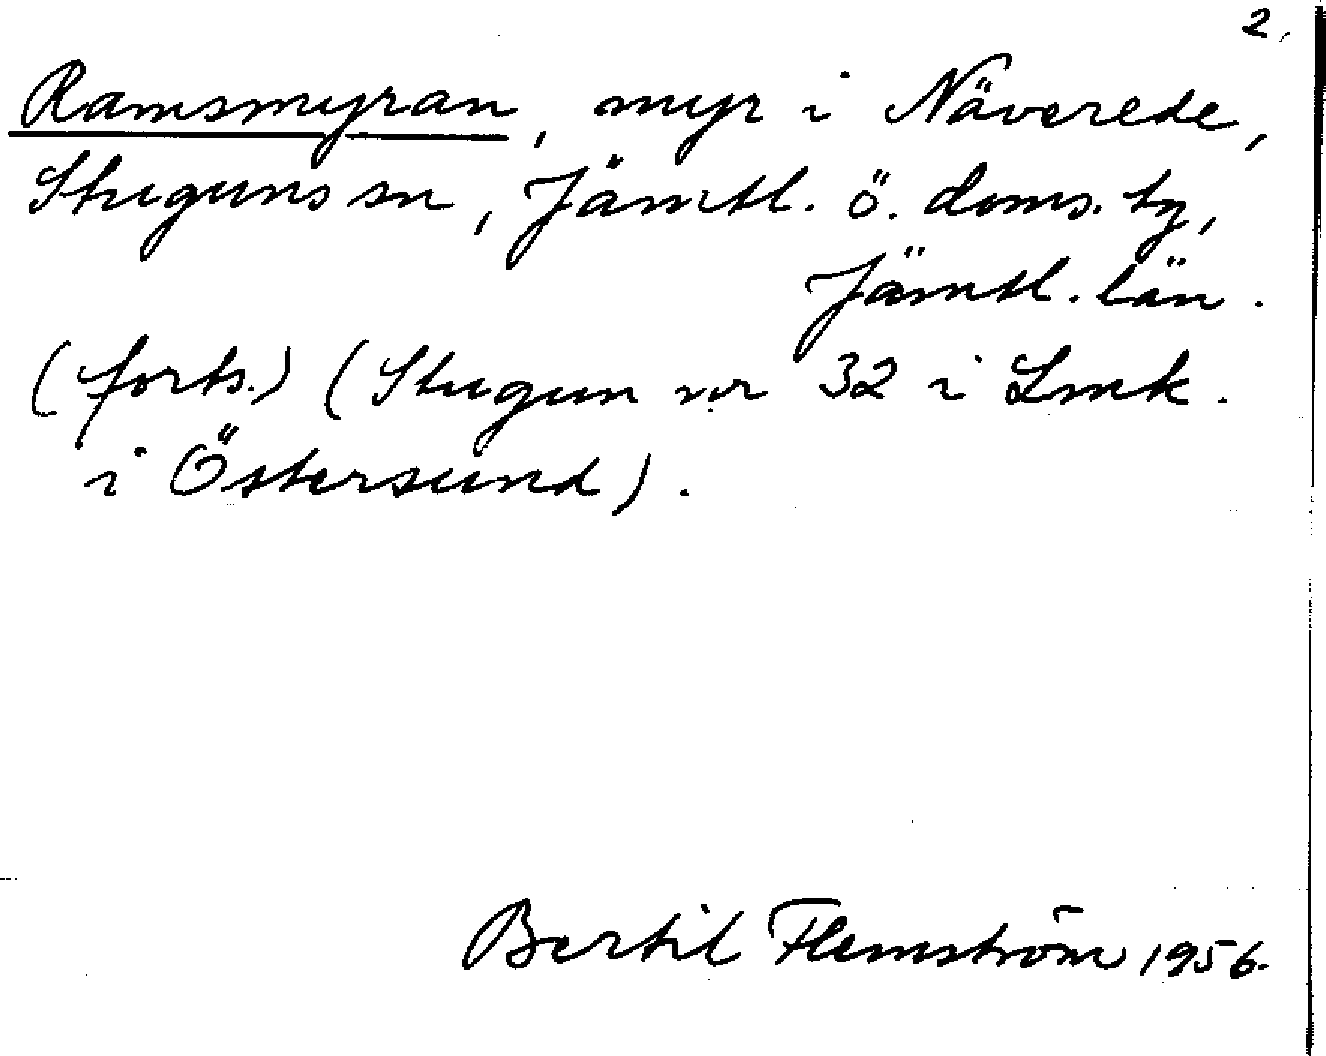 2.
Ramsmyran, myr i Näverede,
Stuguns sn, Jämtl. ö. doms. tg,
Jämtl. län.
(forts.) (Stugun nr 32 i Lmk.
i Östersund).
Bertil Flemström 1956.